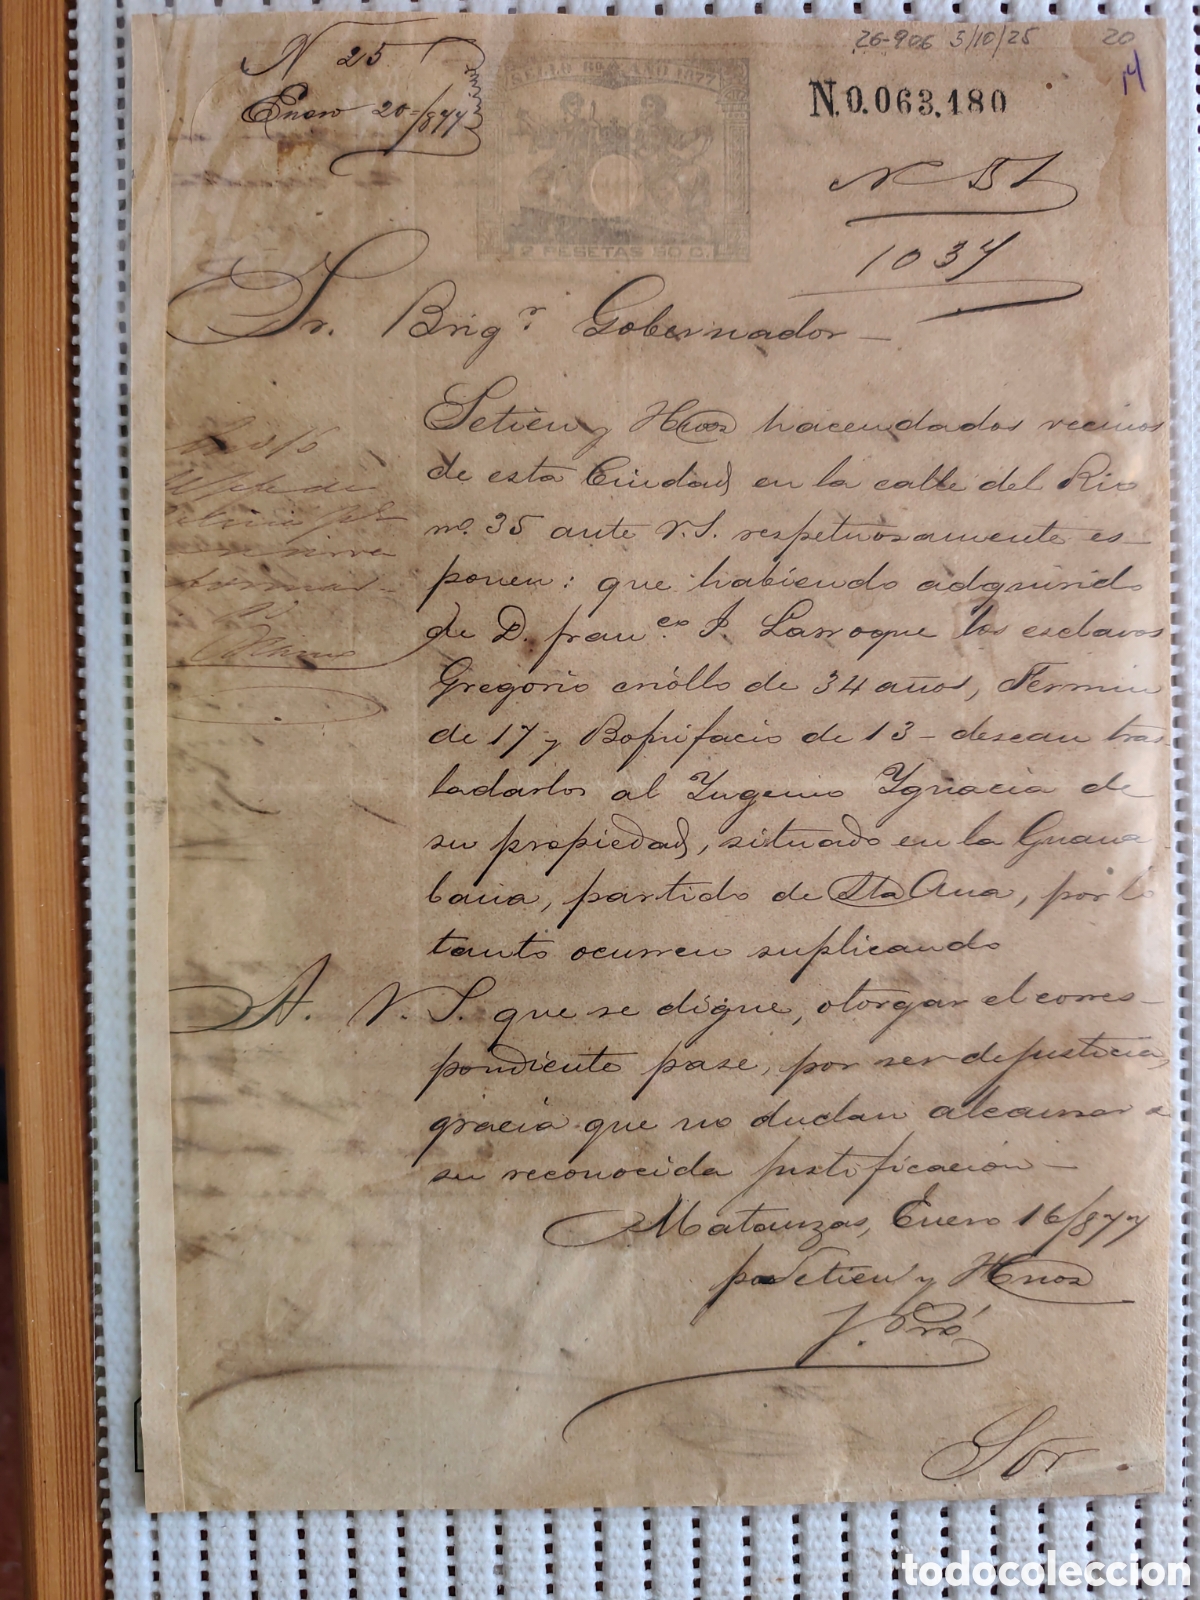 26-906 3/10/25 20
N 25
Enero 20/877
SELLO 6º AÑO 1877
2 PESETAS 50 C.
N.0.063.180
N 51
1037
Sr. Brigr Gobernador
Setien y Hnos hacendados vecinos
de esta Ciudad en la calle del Rio
no. 35 ante V.S. respetuosamente es-
ponen: que habiendo adquirido
de D. Franco. J. Larroque los esclavos
Gregorio criollo de 34 años, Fermin
de 17 y Bonifacio de 13 - desean tras-
ladarlos al Ingenio Ygnacia de
su propiedad, situado en la Guana-
bana, partido de Sta Ana, por lo
tanto ocurren suplicando
A. V. S. que se digne, otorgar el corres-
pondiente pase, por ser de justicia,
gracia que no dudan alcanzar a
su reconocida justificacion -
Matanzas, Enero 16/877
por Setien y Hnos
Sor.
todocoleccion